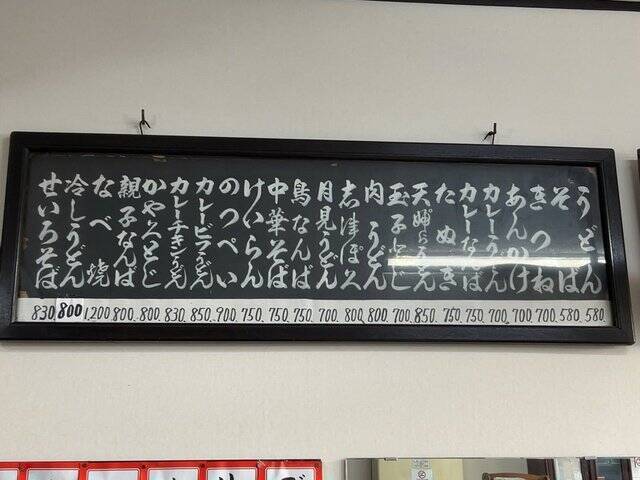 うどん 580
そば 580
きつね 700
あんかけ 700
カレーうどん 700
カレーなんば 750
たぬき 750
天婦らうどん 850
玉子とじ 700
肉うどん 800
志津ぽく 800
月見うどん 700
鳥なんば 750
中華そば 750
けいらん 750
のつぺい 900
カレービフうどん 850
カレーチキンうどん 830
かやくとじ 800
親子なんば 800
なべ焼 1,200
冷しうどん 800
せいろそば 830